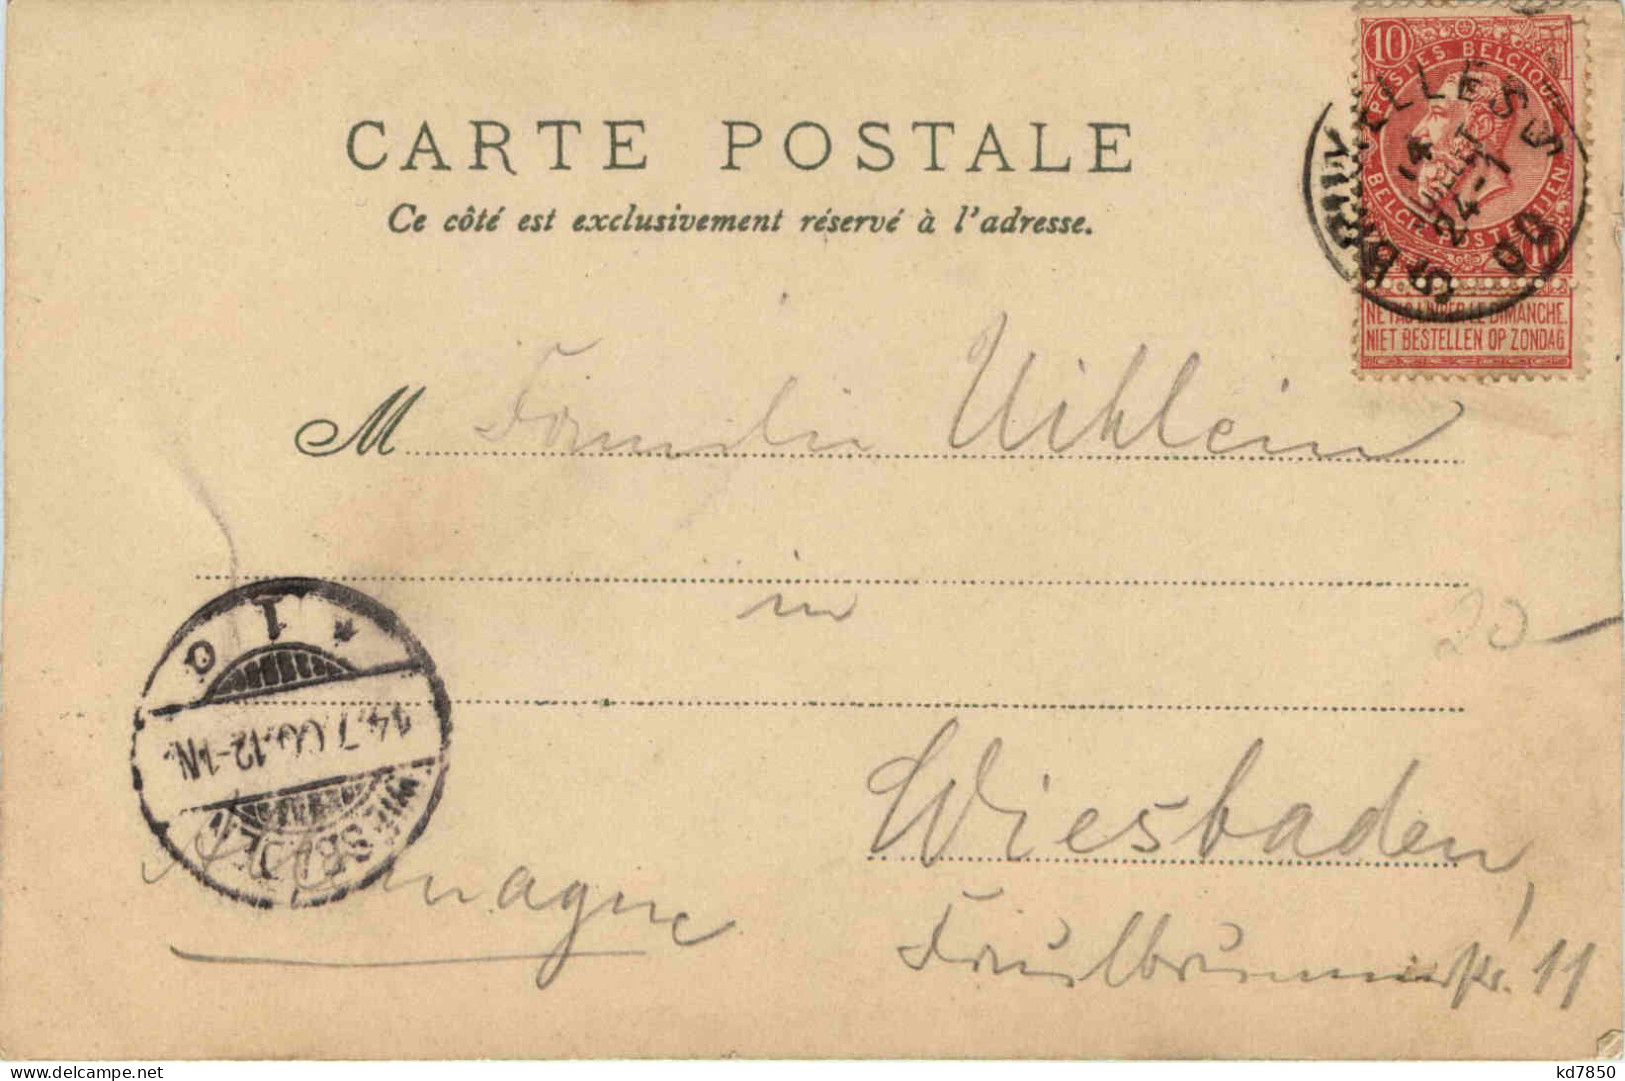 CARTE POSTALE
Ce côté est exclusivement réservé à l'adresse.
10
POSTES BELGIQUE
BELGIË POSTERIJEN
10
NE PAS LIVRER LE DIMANCHE.
NIET BESTELLEN OP ZONDAG
BRUXELLES 5
14
JUILLET
24-1
00
M Familie Uihlein
in
20
* 1 a
14.7.00.12-1N.
WIESBADEN
Wiesbaden,
Allemagne
Faulbrunnenstr. 11
kd7850